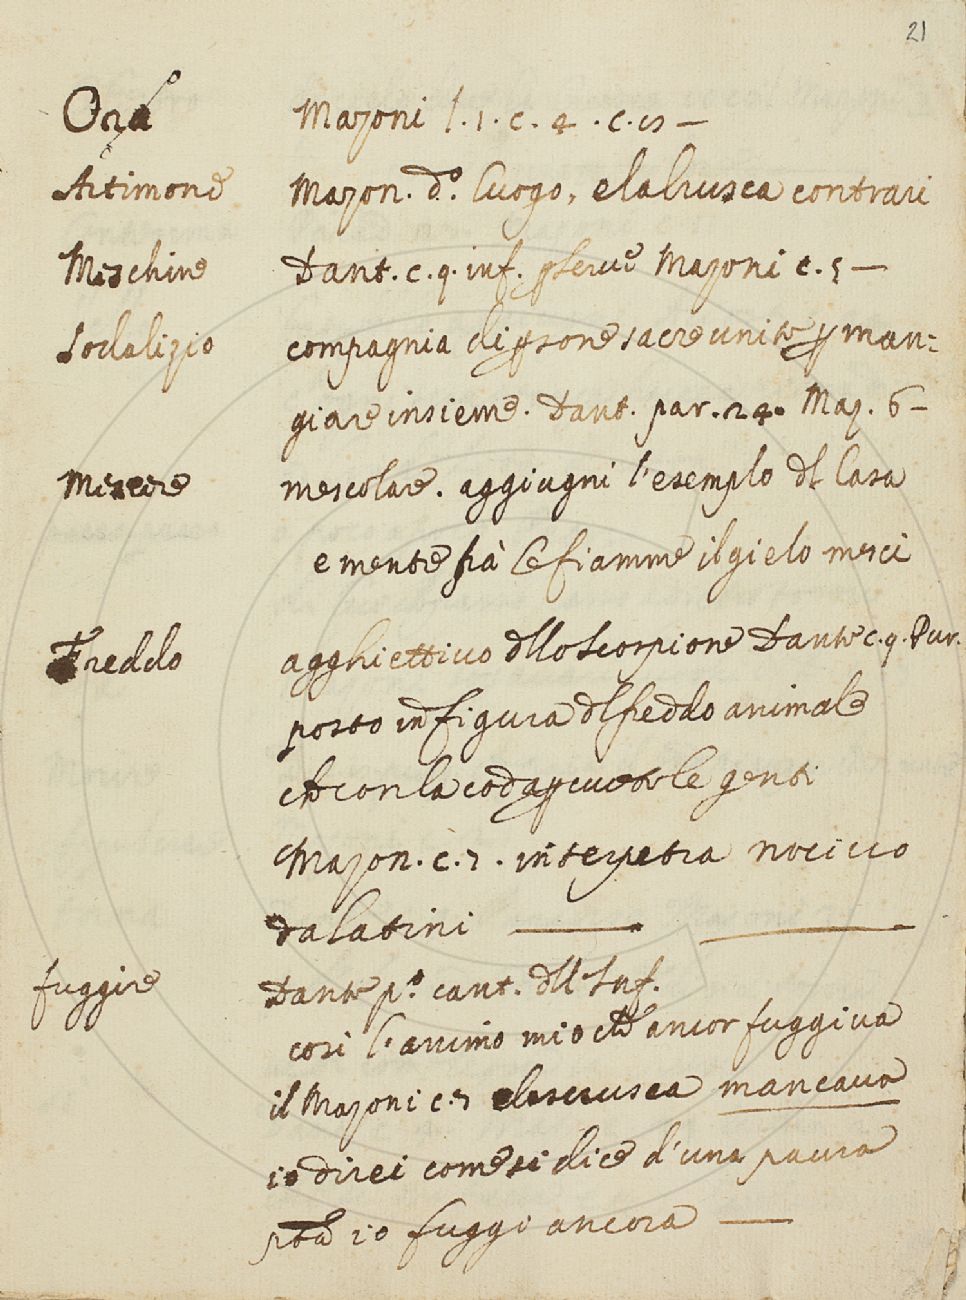 21
Ora Mazoni l. 1. c. 4. c. 15 —
Artimone Mazon. d.º luogo, e la Crusca contrari
Meschine Dant. c. 9. inf. ꝑ serve Mazoni c. 5 —
Sodalizio compagnia di ꝑsone sacre unite ꝑ man:
giare insieme. Dant. par. 24. Maz. 6 —
Mescere mescolare. aggiugni l'esemplo dl Casa
e mentre frà le fiamme il gielo mesci
Freddo agghiettivo dllo Scorpione Dante c. 9. Pur.
posto in figura dl freddo animale
che con la coda ꝑcuote le genti
Mazon. c. 7. interpetra nocivo
da latini —
fuggire Dante pº. cant. dll Inf.
cosi l'animo mio che ancor fuggiva
il Mazoni c. 7 e la Crusca mancava
io direi come si dice d'una paura
che io fuggi ancora —